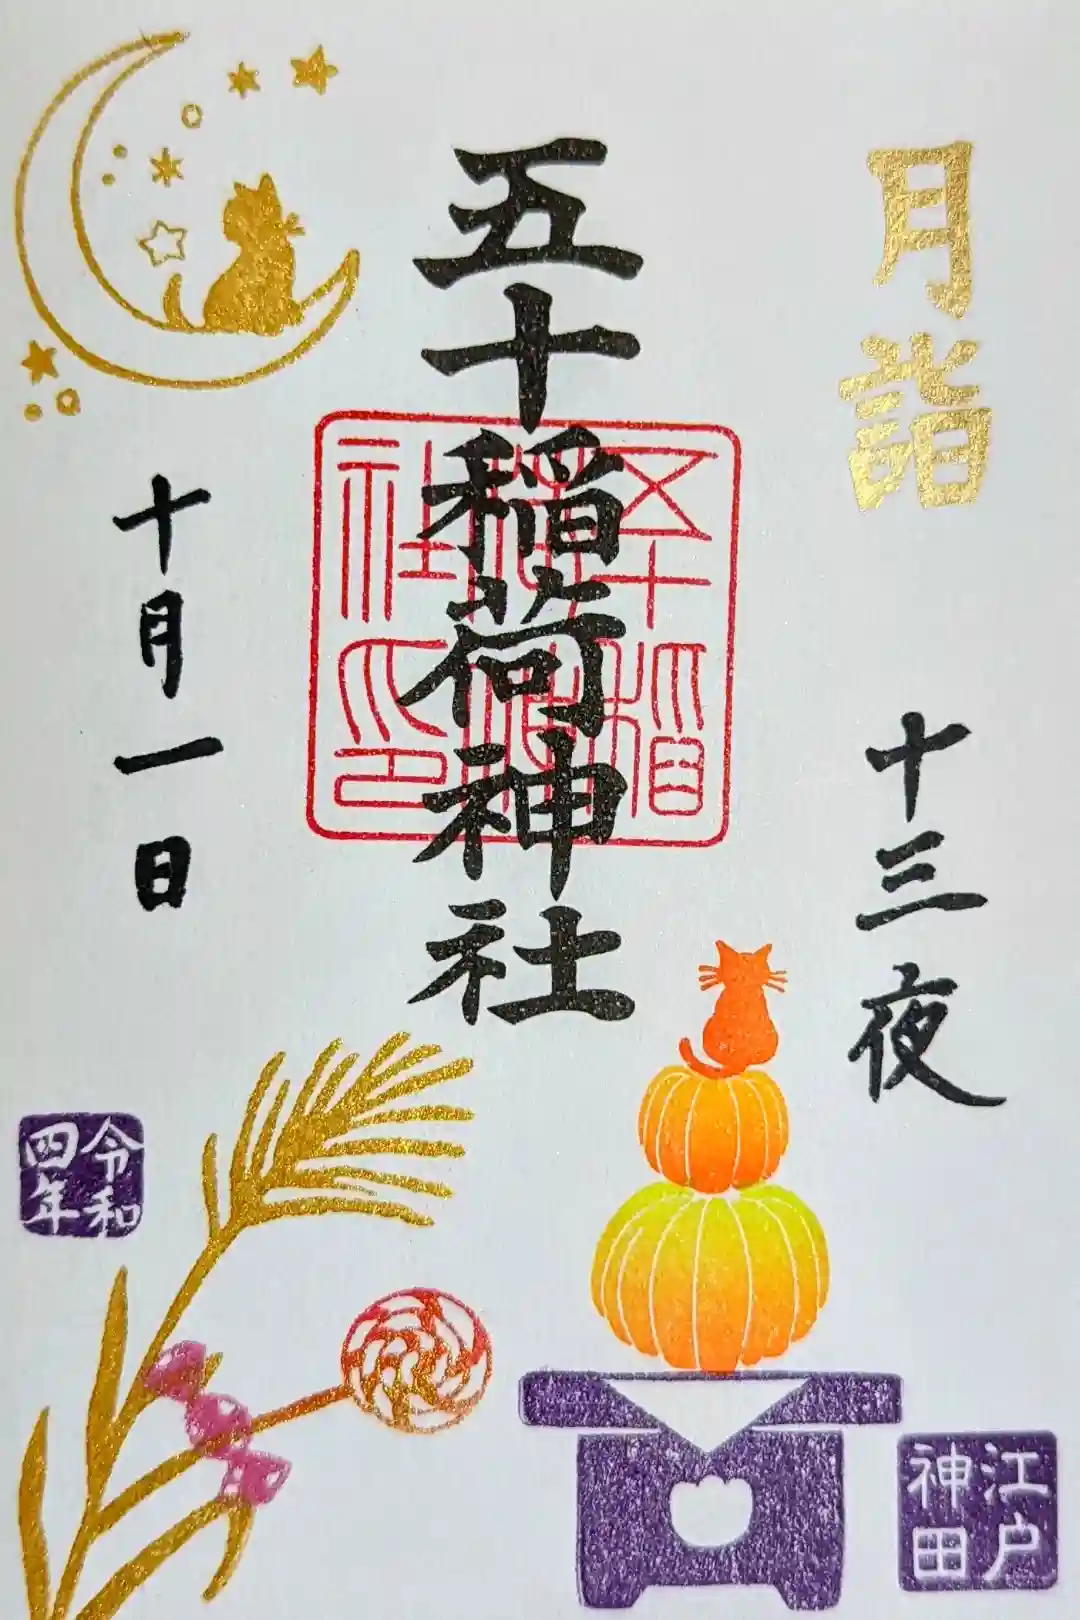 月詣
十三夜
五十稲荷神社
五十稲荷神社印
十月一日
令和四年
江戸神田